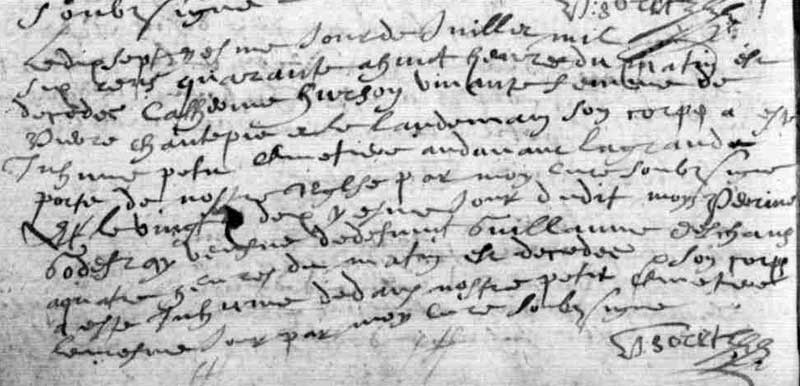 soubsigne
Le dix septyesme Jour de Juillet mil
six cens quarante a huict heures du matin est
decedee Catherine hurson vivante femme de
Pierre chantepie et le landemain son corps a este
Inhume petit cimetiere au davant la grande
porte de nostre eglise par moy cure soubsigne
Le vingt deuxyesme Jour dudit moys Perrine
Godefray veufve de deffunt Guillaume deschamps
a quatre heures du matin est decedee son corps
a este Inhume dedans nostre petit cimetiere
le mesme Jour par moy cure soubsigne